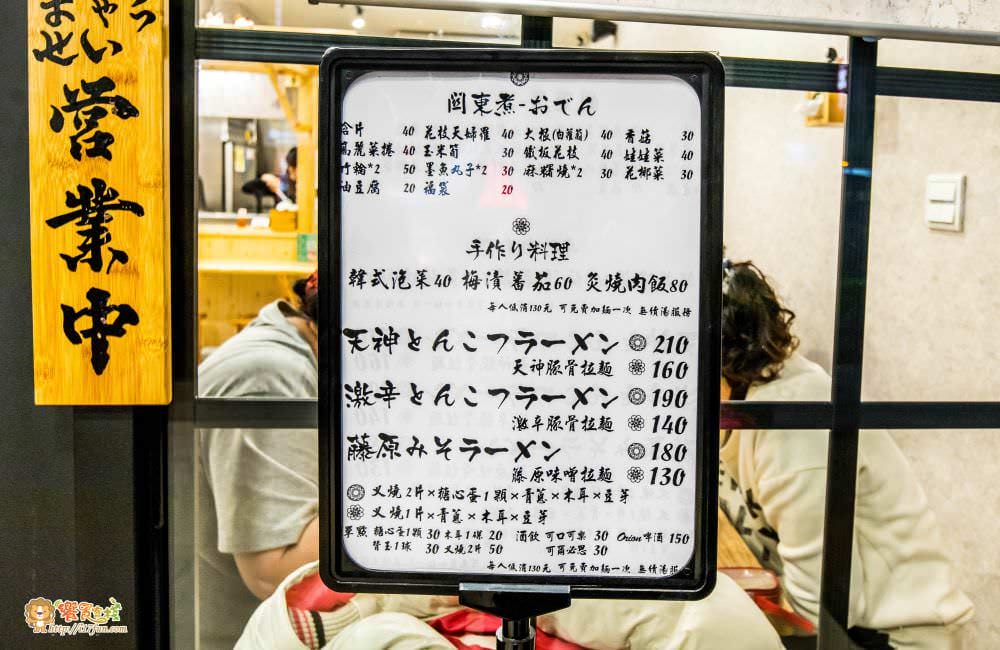 ませ
ゃい
っ
営業中
関東煮-おでん
合片 40 花枝天婦羅 40 大根(白蘿蔔) 40 香菇 30
高麗菜捲 40 玉米筍 30 鐵板花枝 40 娃娃菜 40
竹輪*2 50 墨魚丸子*2 30 麻糬燒*2 30 花椰菜 30
油豆腐 20 福袋 20
手作り料理
韓式泡菜40 梅漬蕃茄60 炙燒肉飯80
每人低消130元 可免費加麵一次 無續湯服務
天神とんこつラーメン 210
天神豚骨拉麵 160
激辛とんこつラーメン 190
激辛豚骨拉麵 140
藤原みそラーメン 180
藤原味噌拉麵 130
叉燒2片×糖心蛋1顆×青蔥×木耳×豆芽
叉燒1片×青蔥×木耳×豆芽
單點 糖心蛋1顆 30 木耳1碟 20 酒飲 可口可樂 30 Orion啤酒 150
替玉1球 30 叉燒2片 50 可爾必思 30
每人低消130元 可免費加麵一次 無續湯服
饗食生活
http://617fun.com